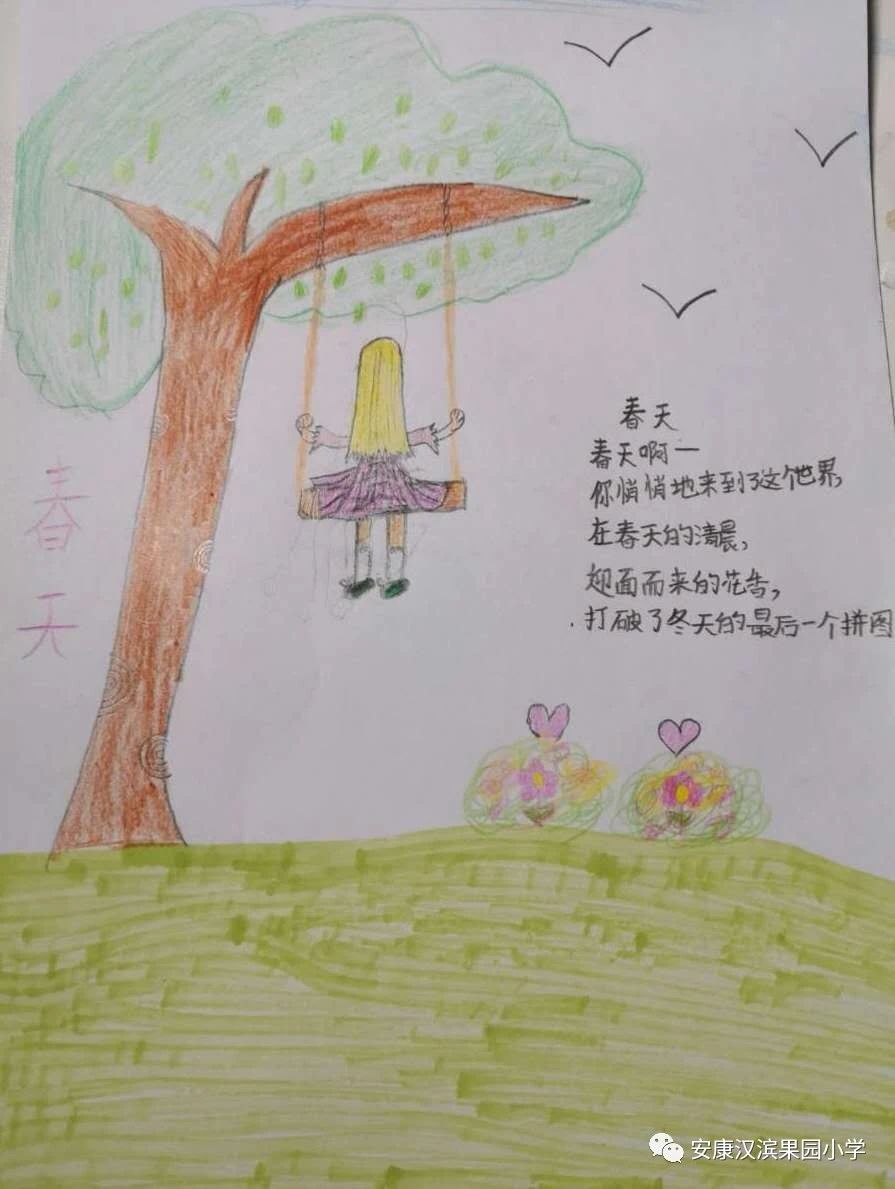 春天
春天
春天啊一
你悄悄地来到了这个世界，
在春天的清晨，
迎面而来的花香，
打破了冬天的最后一个拼图
安康汉滨果园小学